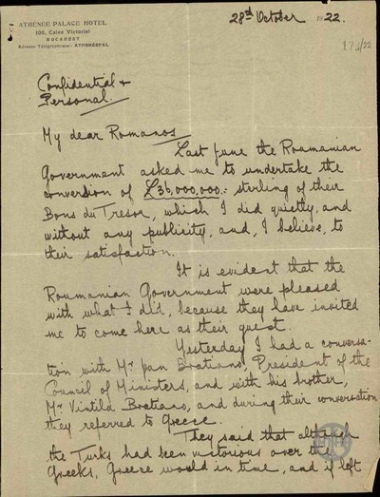 ATHÉNÉE PALACE HOTEL
BUCAREST
28th October 1922.
Confidential &
Personal.
My dear Romanos
Last June the Roumanian
Government asked me to undertake the
conversion of £36,000,000:- sterling of their
Bons du Tresor, which I did quietly, and
without any publicity, and, I believe, to
their satisfaction.
It is evident that the
Roumanian Government were pleased
with what I did, because they have invited
me to come here as their guest.
Yesterday I had a conversa-
tion with Mr Jan Bratiano, President of the
Council of Ministers, and with his brother,
Mr Vintila Bratiano, and during their conversation
they referred to Greece.
They said that although
the Turks had been victorious over the
Greeks, Greece would in time, and if left